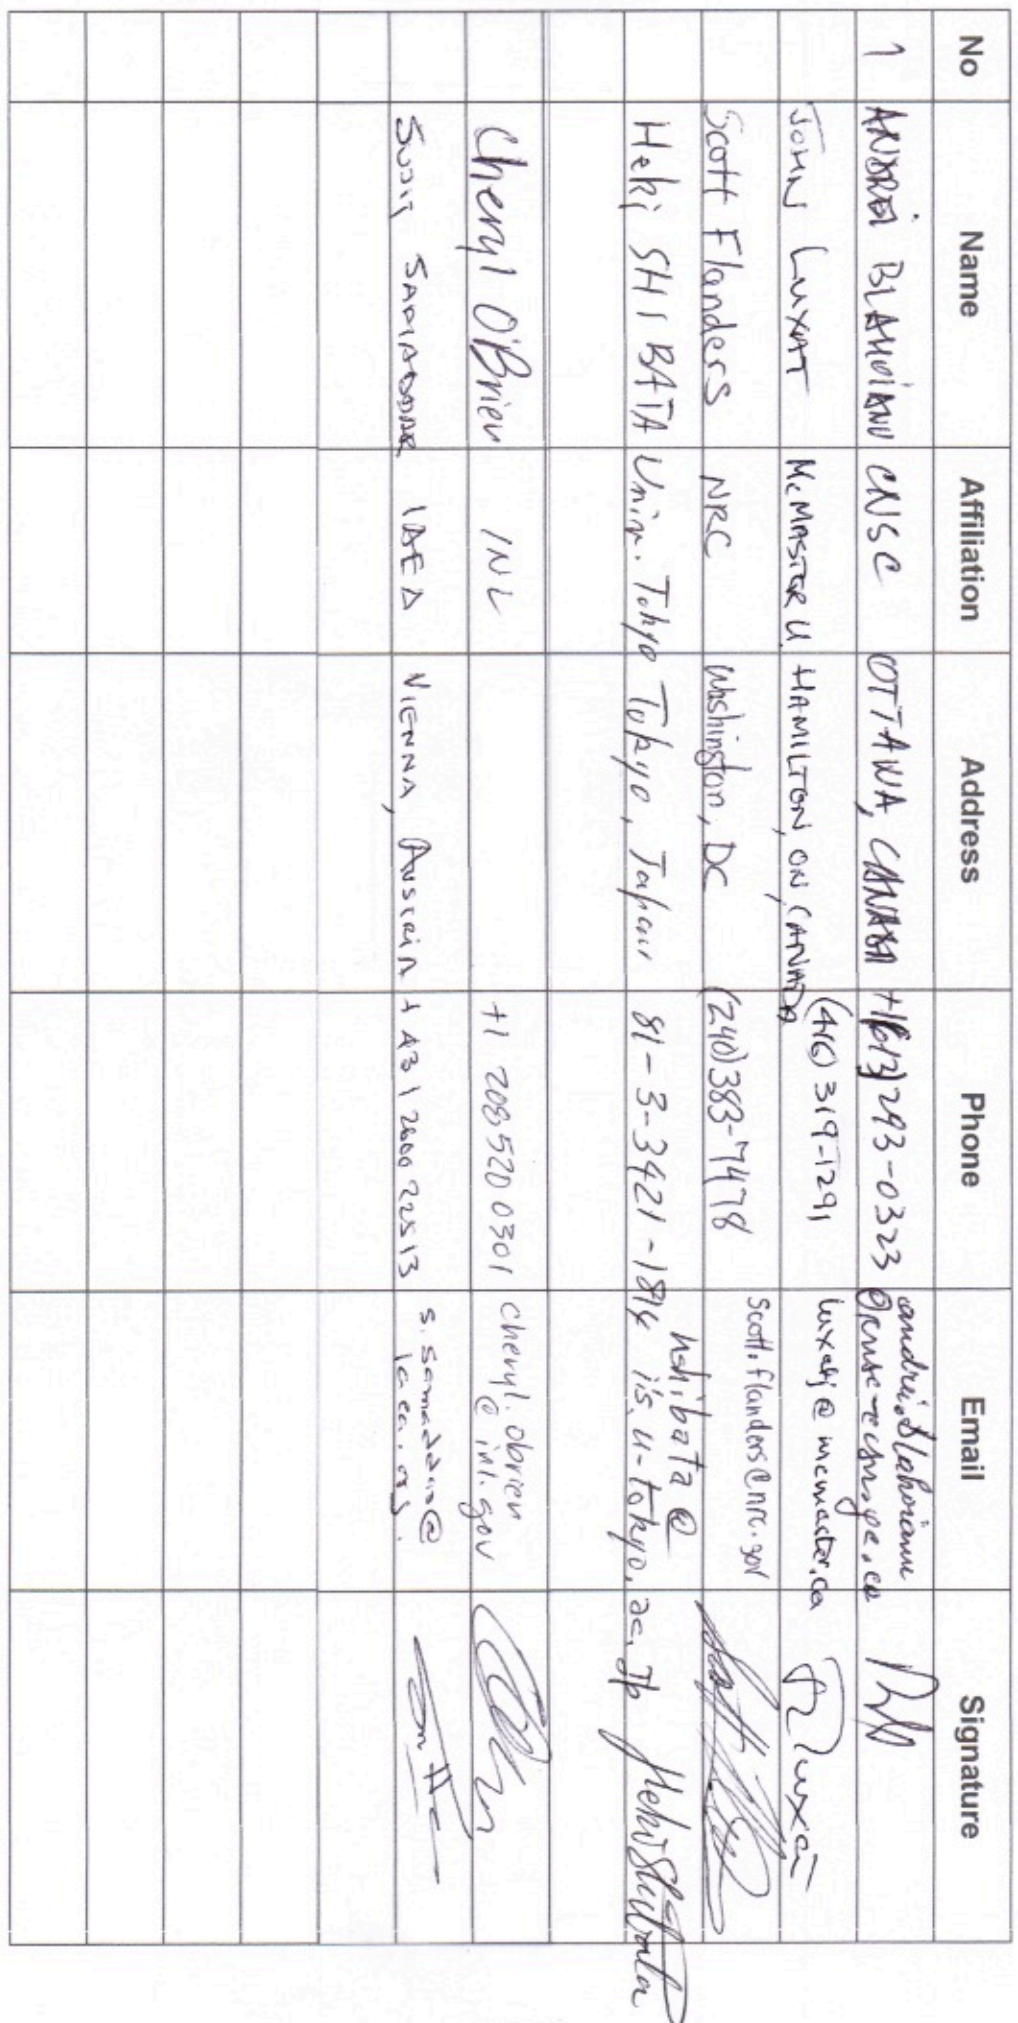 No Name Affiliation Address Phone Email Signature
1 ANDREI BLAHOIANU CNSC OTTAWA, CANADA +1(613)293-0323
JOHN LUXAT McMASTER U. HAMILTON, ON, CANADA (416) 319-1291 luxatj@mcmaster.ca
Scott Flanders NRC Washington, DC (240)383-7478 scott.flanders@nrc.gov
Heki SHIBATA Univ. Tokyo Tokyo, Japan 81-3-3421-1814 hshibata@
is.u-tokyo.ac.jp Heki Shibata
Cheryl O'Brien INL +1 208 520 0301 cheryl.obrien
@inl.gov
SUJIT SAMADDAR IAEA VIENNA, AUSTRIA +43 1 2600 22513 s.samaddar@
iaea.org.